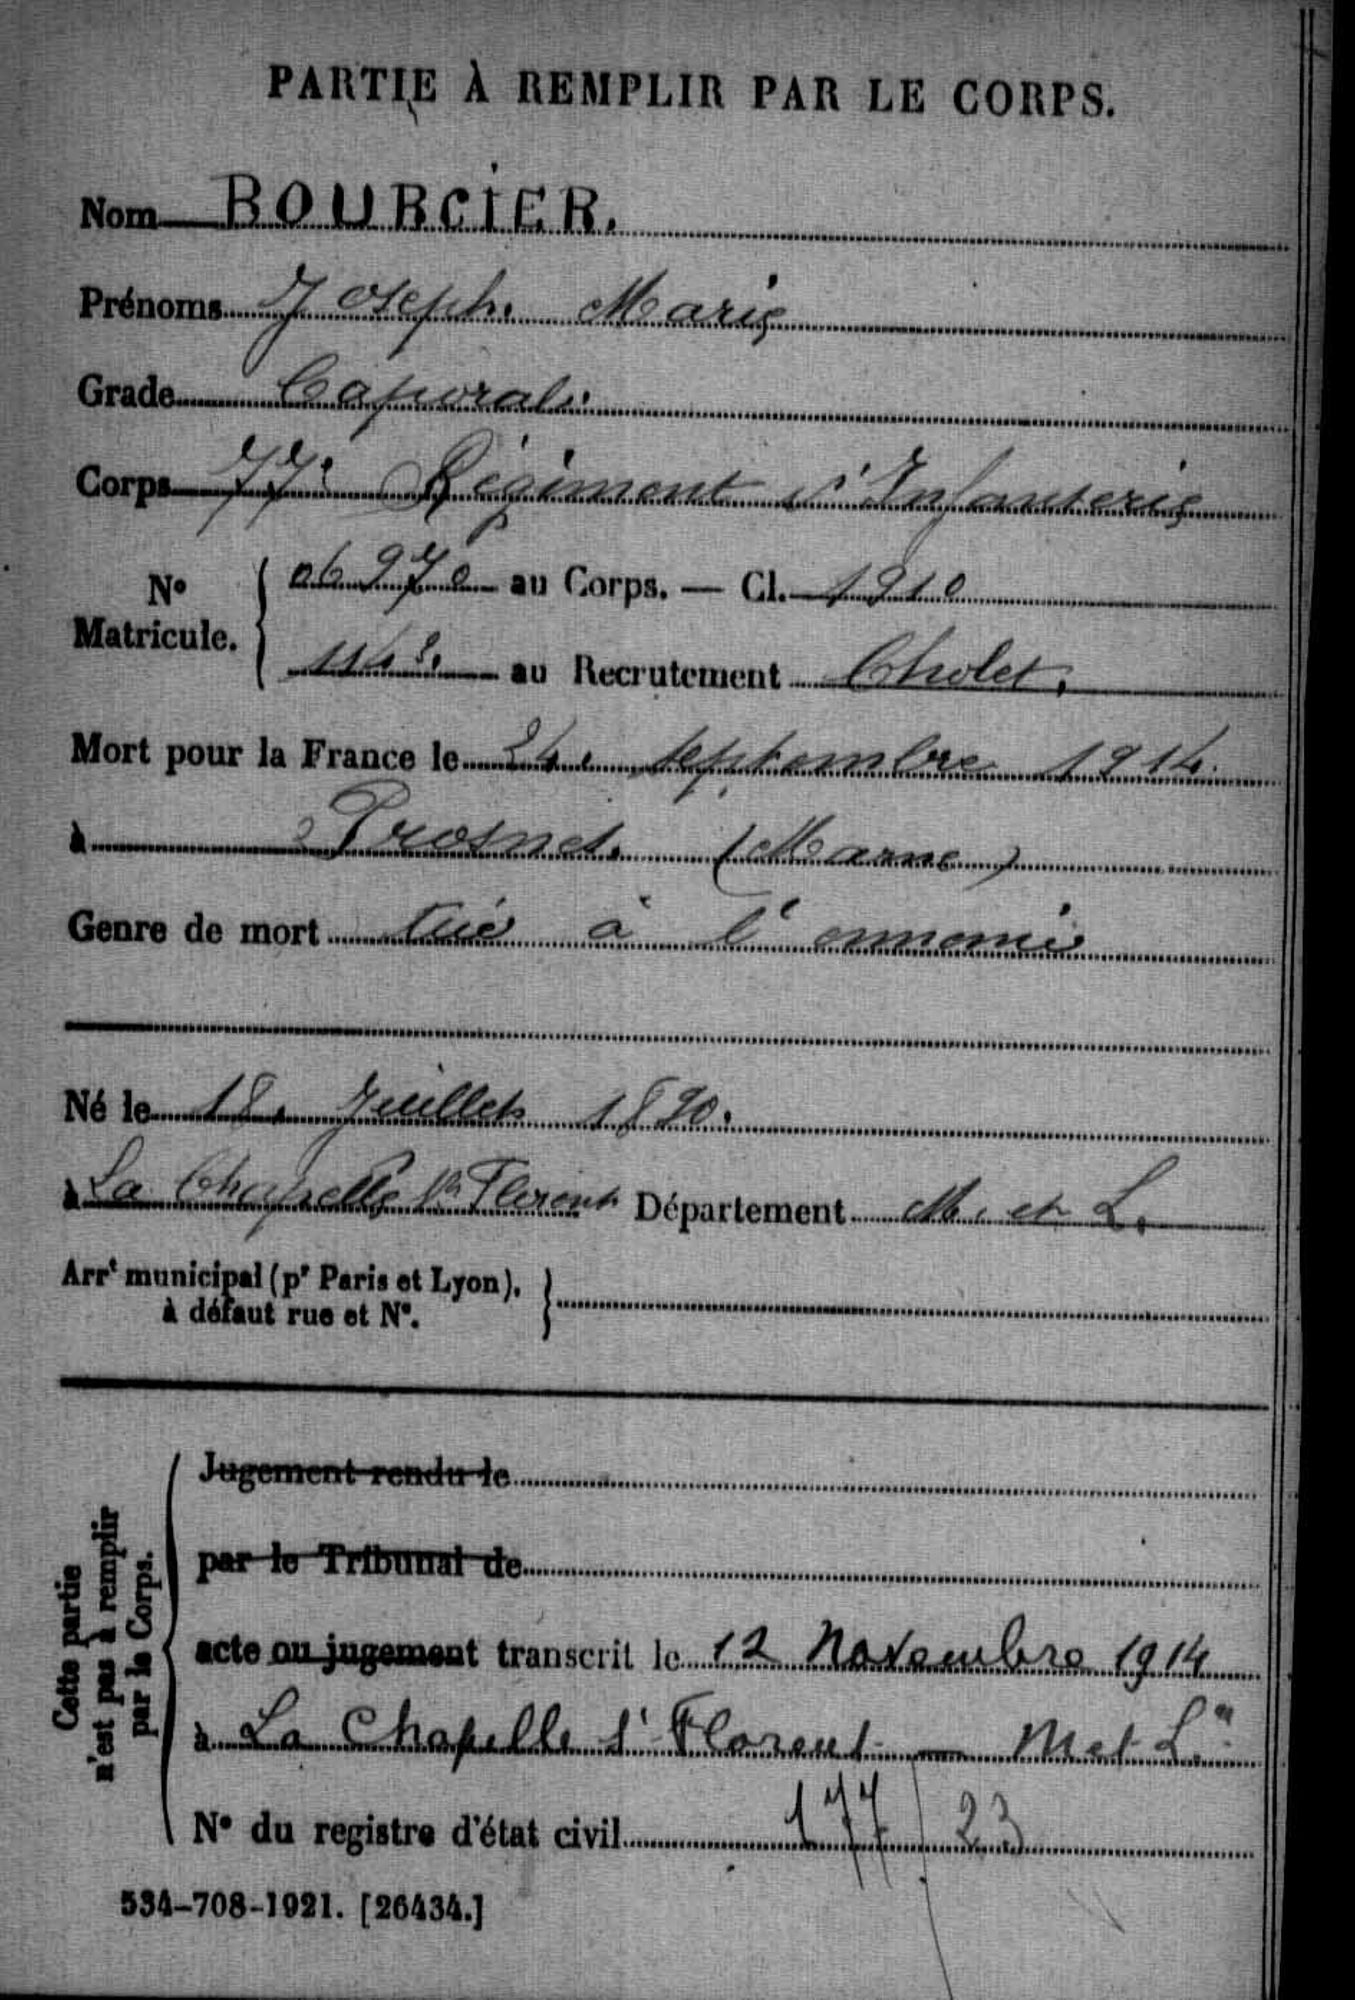 PARTIE À REMPLIR PAR LE CORPS.
Nom BOURCIER.
Prénoms Joseph Marie
Grade Caporal.
Corps 77e Régiment d'Infanterie
No Matricule. { 06970 au Corps. — Cl. 1910
au Recrutement Cholet.
Mort pour la France le 24 septembre 1914
à Prosnes (Marne)
Genre de mort tué à l'ennemi
Né le 18 Juillet 1890.
à La Chapelle St Florent Département M. et L.
Arrt municipal (pr Paris et Lyon),
à défaut rue et No.
Cette partie n'est pas à remplir par le Corps.
Jugement rendu le
par le Tribunal de
acte ou jugement transcrit le 12 Novembre 1914
à La Chapelle St Florent — M et L
No du registre d'état civil 177/23
534-708-1921. [26434.]